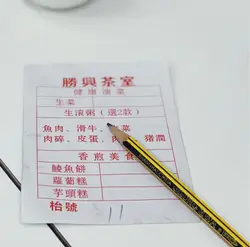 勝興茶室
健康油菜
生菜
生滾粥（選2款）
魚肉、滑牛、菜
肉碎、皮蛋、肉、豬潤
香煎美食
鯪魚餅
蘿蔔糕
芋頭糕
枱號 11